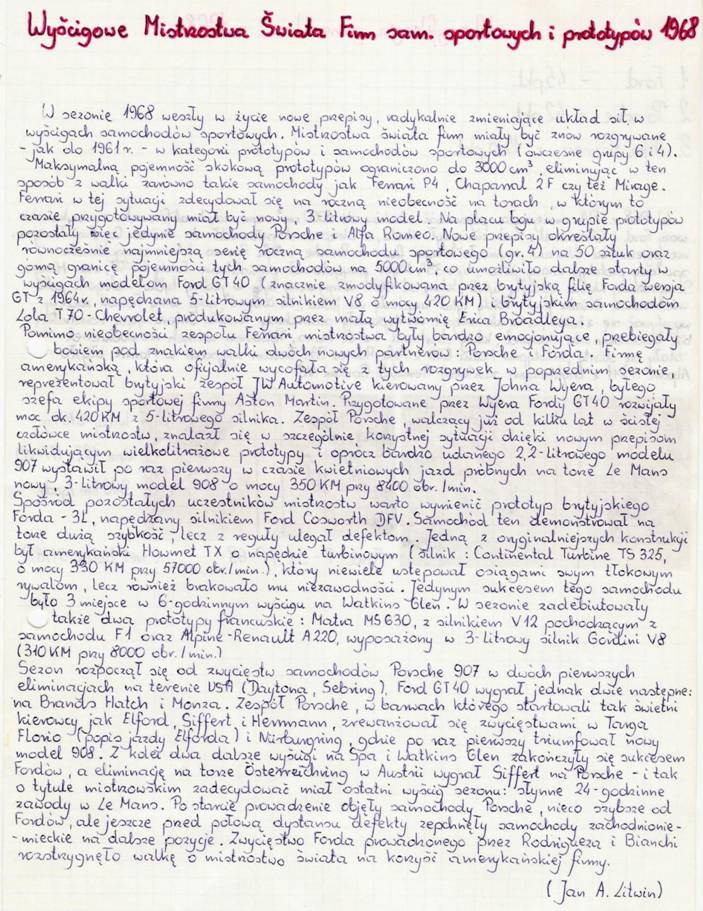 Wyścigowe Mistrzostwa Świata Firm sam. sportowych i prototypów 1968
W sezonie 1968 weszły w życie nowe przepisy, radykalnie zmieniające układ sił w
wyścigach samochodów sportowych. Mistrzostwa świata firm miały być znów rozgrywane
- jak do 1961 r. - w kategorii prototypów i samochodów sportowych (ówczesne grupy 6 i 4).
Maksymalną pojemność skokową prototypów ograniczono do 3000 cm³, eliminując w ten
sposób z walki zarówno takie samochody jak Ferrari P4, Chaparral 2F czy też Mirage.
Ferrari w tej sytuacji zdecydował się na roczną nieobecność na torach, w którym to
czasie przygotowywany miał być nowy, 3-litrowy model. Na placu boju w grupie prototypów
pozostały więc jedynie samochody Porsche i Alfa Romeo. Nowe przepisy określały
równocześnie najmniejszą serię roczną samochodu sportowego (gr. 4) na 50 sztuk oraz
górną granicę pojemności tych samochodów na 5000 cm³, co umożliwiło dalsze starty w
wyścigach modelom Ford GT 40 (znacznie zmodyfikowana przez brytyjską filię Forda wersja
GT z 1964 r., napędzana 5-litrowym silnikiem V8 o mocy 420 KM) i brytyjskim samochodom
Lola T70 - Chevrolet, produkowanym przez małą wytwórnię Erica Broadleya.
Pomimo nieobecności zespołu Ferrari mistrzostwa były bardzo emocjonujące, przebiegały
bowiem pod znakiem walki dwóch nowych partnerów: Porsche i Forda. Firmę
amerykańską, która oficjalnie wycofała się z tych rozgrywek w poprzednim sezonie,
reprezentował brytyjski zespół JW Automotive kierowany przez Johna Wyera, byłego
szefa ekipy sportowej firmy Aston Martin. Przygotowane przez Wyera Fordy GT 40 rozwijały
moc ok. 420 KM z 5-litrowego silnika. Zespół Porsche, walczący już od kilku lat w ścisłej
czołówce mistrzostw, znalazł się w szczególnie korzystnej sytuacji dzięki nowym przepisom
likwidującym wielkolitrażowe prototypy i oprócz bardzo udanego 2,2-litrowego modelu
907 wystawił po raz pierwszy w czasie kwietniowych jazd próbnych na torze Le Mans
nowy, 3-litrowy model 908 o mocy 350 KM przy 8400 obr./min.
Spośród pozostałych uczestników mistrzostw warto wymienić prototyp brytyjskiego
Forda - 3L, napędzany silnikiem Ford Cosworth DFV. Samochód ten demonstrował na
torze dużą szybkość, lecz z reguły ulegał defektom. Jedną z oryginalniejszych konstrukcji
był amerykański Howmet TX o napędzie turbinowym (silnik: Continental Turbine TS 325,
o mocy 330 KM przy 57000 obr./min.), który niewiele ustępował osiągami swym tłokowym
rywalom, lecz również brakowało mu niezawodności. Jedynym sukcesem tego samochodu
było 3 miejsce w 6-godzinnym wyścigu na Watkins Glen. W sezonie zadebiutowały
także dwa prototypy francuskie: Matra MS 630, z silnikiem V12 pochodzącym z
samochodu F1 oraz Alpine-Renault A220, wyposażony w 3-litrowy silnik Gordini V8
(310 KM przy 8000 obr./min.)
Sezon rozpoczął się od zwycięstw samochodów Porsche 907 w dwóch pierwszych
eliminacjach na terenie USA (Daytona, Sebring), Ford GT 40 wygrał jednak dwie następne:
na Brands Hatch i Monza. Zespół Porsche, w barwach którego startowali tak świetni
kierowcy jak Elford, Siffert i Herrmann, zrewanżował się zwycięstwami w Targa
Florio (popis jazdy Elforda) i Nürburgring, gdzie po raz pierwszy triumfował nowy
model 908. Z kolei dwa dalsze wyścigi na Spa i Watkins Glen zakończyły się sukcesem
Fordów, a eliminację na torze Österreichring w Austrii wygrał Siffert na Porsche - i tak
o tytule mistrzowskim zadecydować miał ostatni wyścig sezonu: słynne 24-godzinne
zawody w Le Mans. Po starcie prowadzenie objęły samochody Porsche, nieco szybsze od
Fordów, ale jeszcze przed połową dystansu defekty zepchnęły samochody zachodnionie-
-mieckie na dalsze pozycje. Zwycięstwo Forda prowadzonego przez Rodrigueza i Bianchi
rozstrzygnęło walkę o mistrzostwo świata na korzyść amerykańskiej firmy.
(Jan A. Litwin)